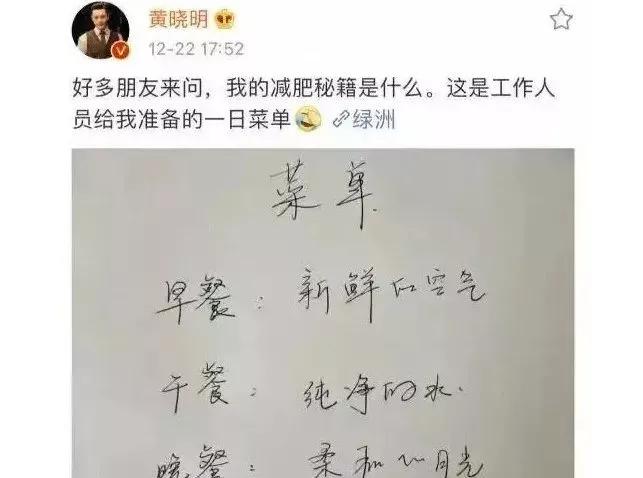 黄晓明
12-22 17:52
好多朋友来问，我的减肥秘籍是什么。这是工作人
员给我准备的一日菜单🤣 绿洲
菜单
早餐：新鲜的空气
午餐：纯净的水.
晚餐：柔和的月光